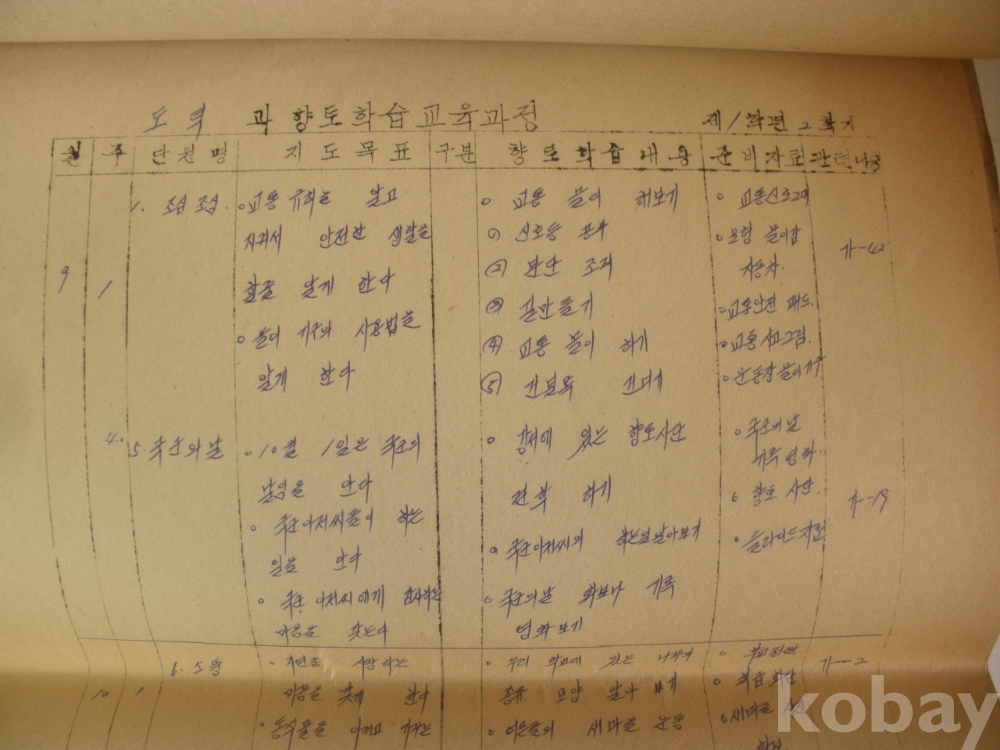 도덕 과 향토학습교육과정
제 1 학년 2 학기
월 주 단원명 지도목표 구분 향토학습내용 준비자료 관련내용
9 1 1. 조심 조심 ○교통 규칙을 알고 ○ 교통 놀이 해보기 ○ 교통신호
지켜서 안전한 생활을 ① 신호등 ○ 모형 놀이감
할줄 알게 한다 ② 판단 조작 자동차 가-42
○ 놀이 기구의 사용법을 ③ 길만들기 ○교통안전
알게 한다 ④ 교통 놀이 하기 ○교통사고그림
⑤ 건널목 건너기 ○운동장놀이기구
4. 5. 국군의날 ○10월 1일은 국군의 ○ 있는 향토사단 ○ 국군의날
날임을 안다 견학 하기 기록영화
○ 국군아저씨들이 하는 ○ 국군아저씨의 하는일알아보기 ○ 향토 사단 가-19
일을 안다 ○ 국군의날 화보나 기록 ○ 슬라이드자료
○ 국군 아저씨에게 감사하는 영화보기
마음을 갖는다
10 1 6. ○ 자연을 사랑하는 ○ 우리 학교에 있는 ○ 가-2
마음을 갖게 한다 종류 모양 알아 보기 ○ 학급 화단
○ 동식물을 아끼고 가꾸는 ○ 이웃들의 새마을 운동 ○ 새마을
kobay